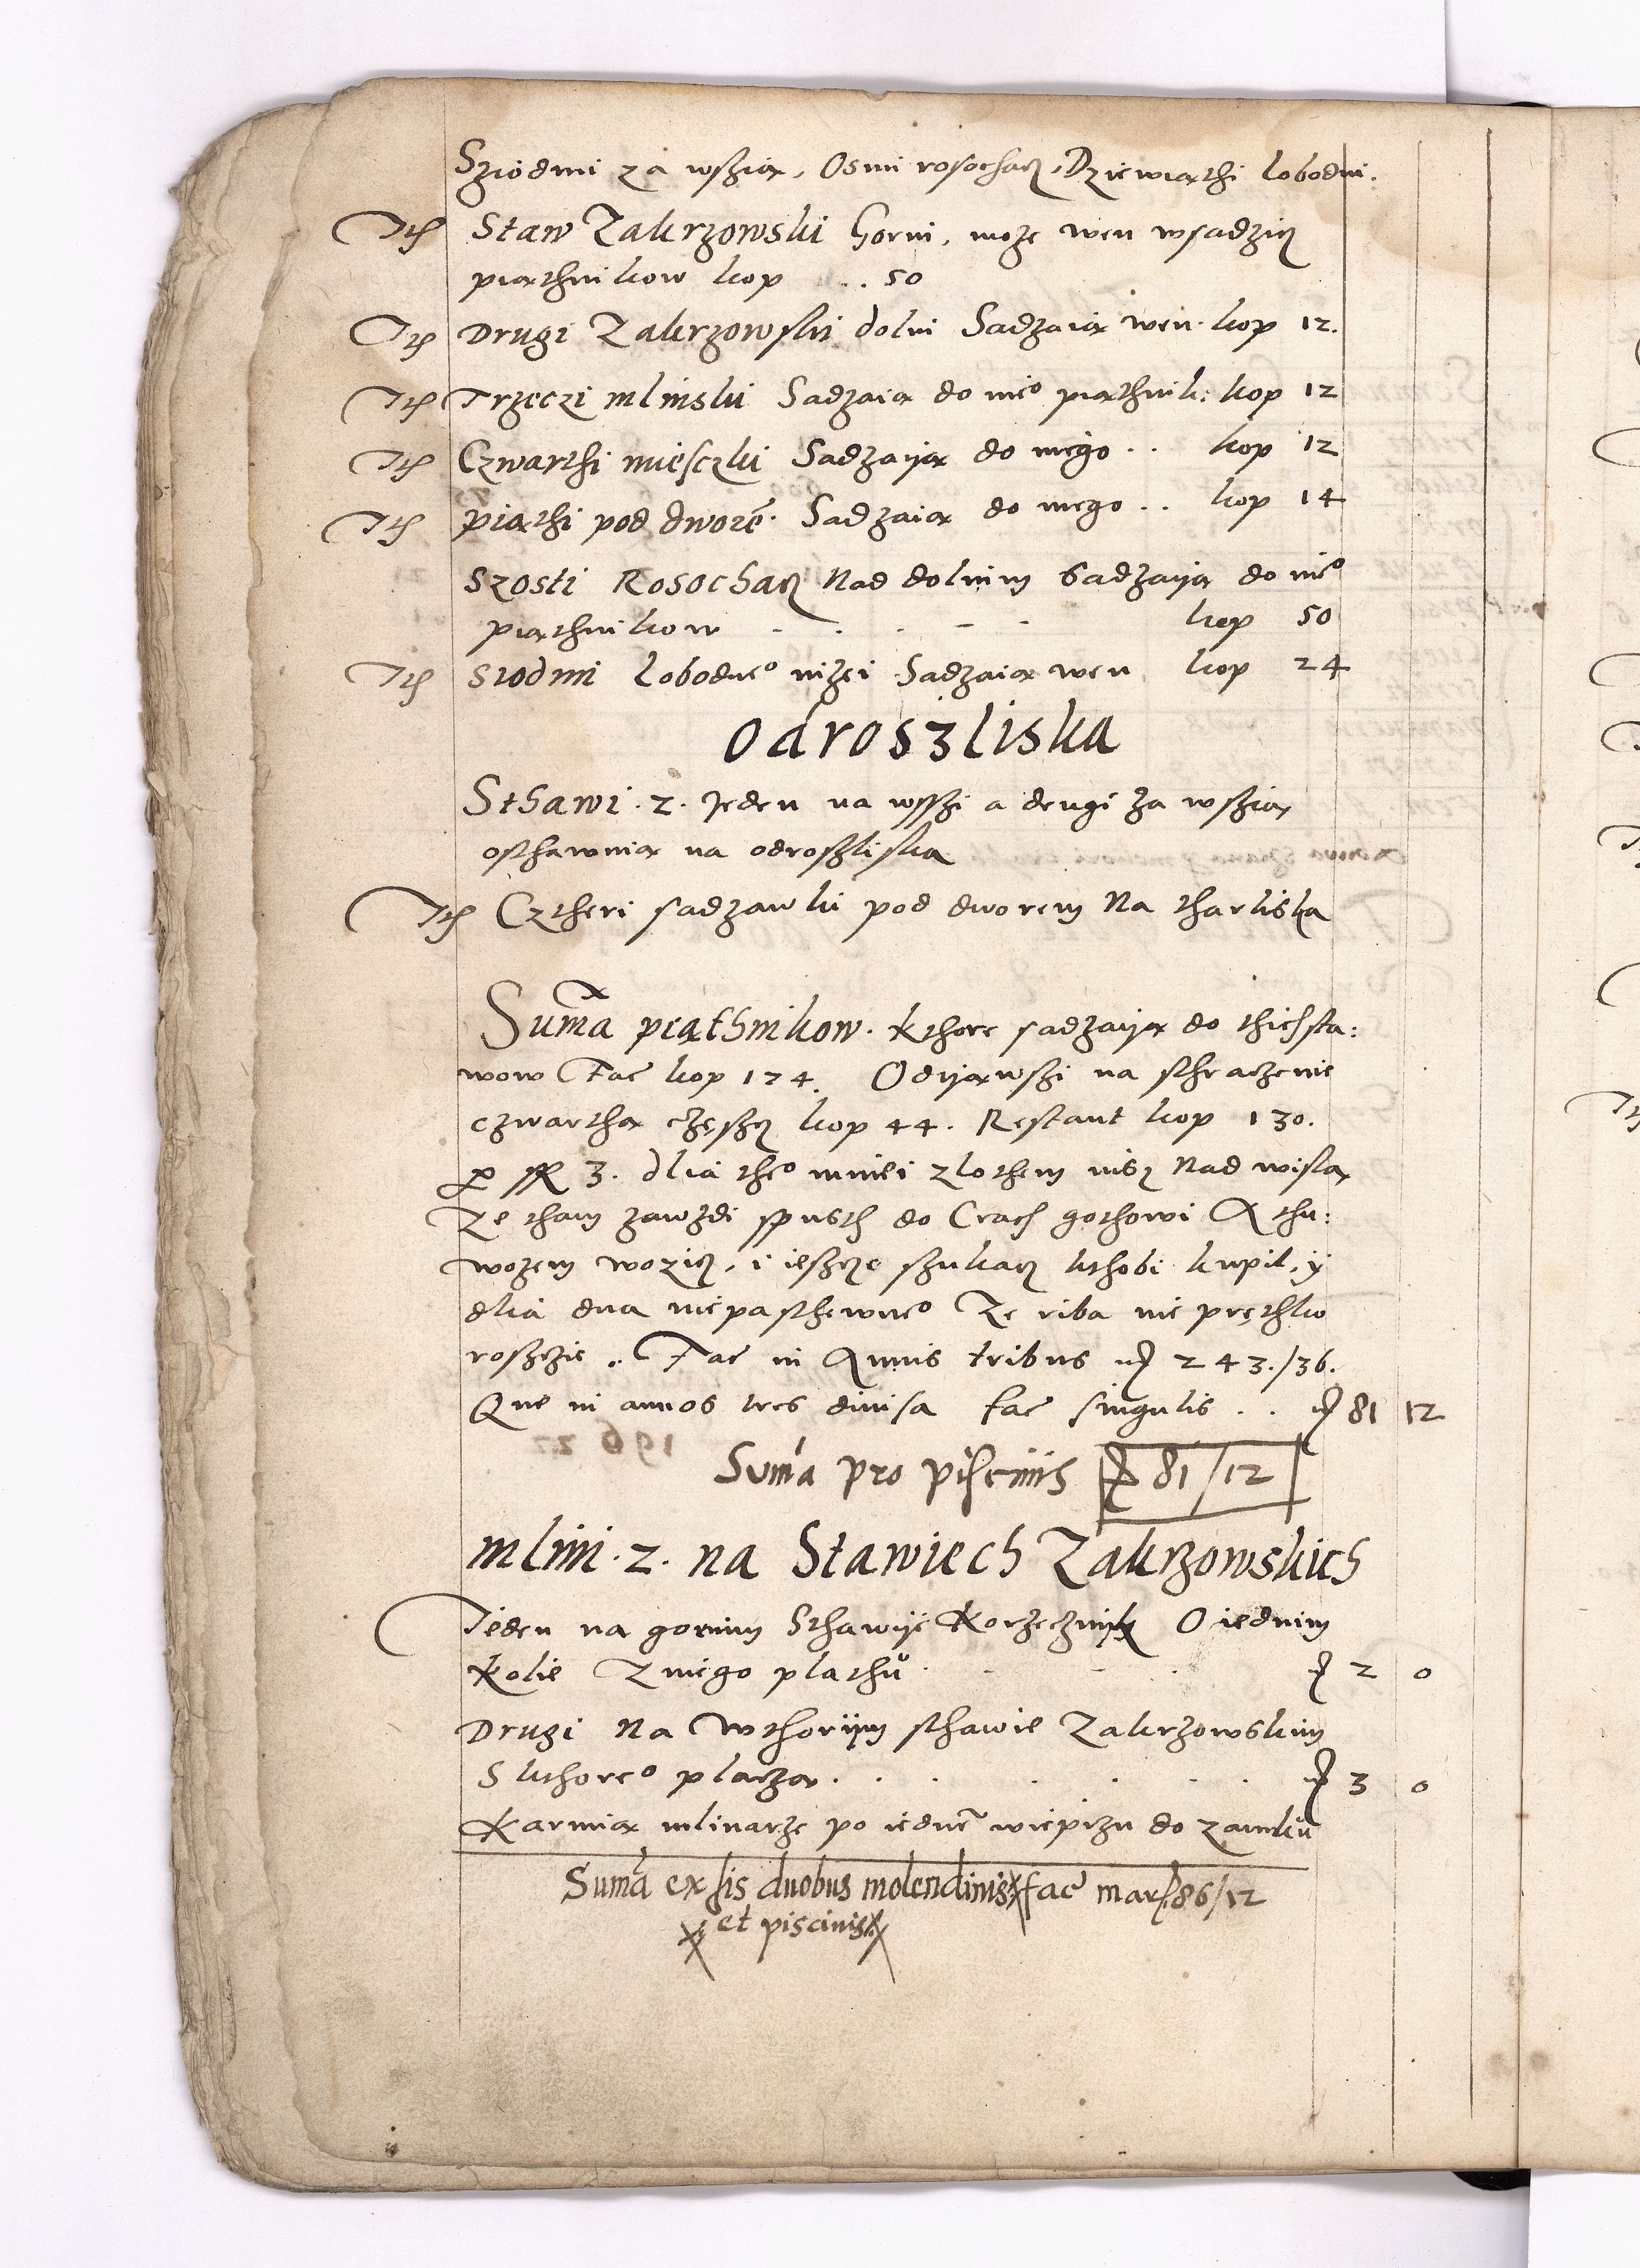 Sziodmi za wszią, Osmi rosochacz, Dziewiąthi lobodni.
Itē Staw Zakrzowski Gorni, może wen wsadzicz
piąthnikow kop .. 50
Itē Drugi Zakrzowski dolni Sadzaią wen kop 12.
Itē Trzeczi mlinski Sadzaią do nieo piąthnik: kop 12
Itē Czwarthi mieisczki Sadzaiją do niego .. kop 12
Itē piąthi pod dworē. Sadzaią do niego .. kop 14
Szosti Rosochacz Nad dolnim Sadzaiją do nieo
piąthnikow . . . kop 50
Itē Siodmi lobodneo niżei Sadzaią wen kop 24
odroszliska
Sthawi .2. Jeden na wsszi a drugi za wszią
osthawnią na odroszliska
Itē Cztheri sadzawki pod dworem Na tharliska
Suma piąthnikow. Kthore sadzaiją do thich sta:
wow Fac kop 174. Odijąwszi na sthraczenie
czwarthą częszcz kop 44. Restant kop 130.
per 3. dlia theo mniei zlothem nisz Nad wislą
Ze tham zawzdi spusth do Crac gothowi A thu:
wozem wozicz, i ieszcze szukacz kthobi kupil, y
dlia dna niepasthewneo Ze riba nie pręthko
roszczie. Fac in Annis tribus 243./36.
Que in annos tres diuisa fac singulis .. 81 12
Suma pro piscinis 81/12
mlini .2. na Stawiech Zakrzowskich
Jeden na gornim Sthawije Korzecznik O iednim
Kolie Z niego plathŭ . . . 2 0
Drugi Na Wthorijm sthawie Zakrzowskim
S kthoreo placzą . . . 3 0
Karmią mlinarze po iednē wieprzu do zamkŭ
Suma ex his duobus molendinis fac mar. 86/12
et piscinis